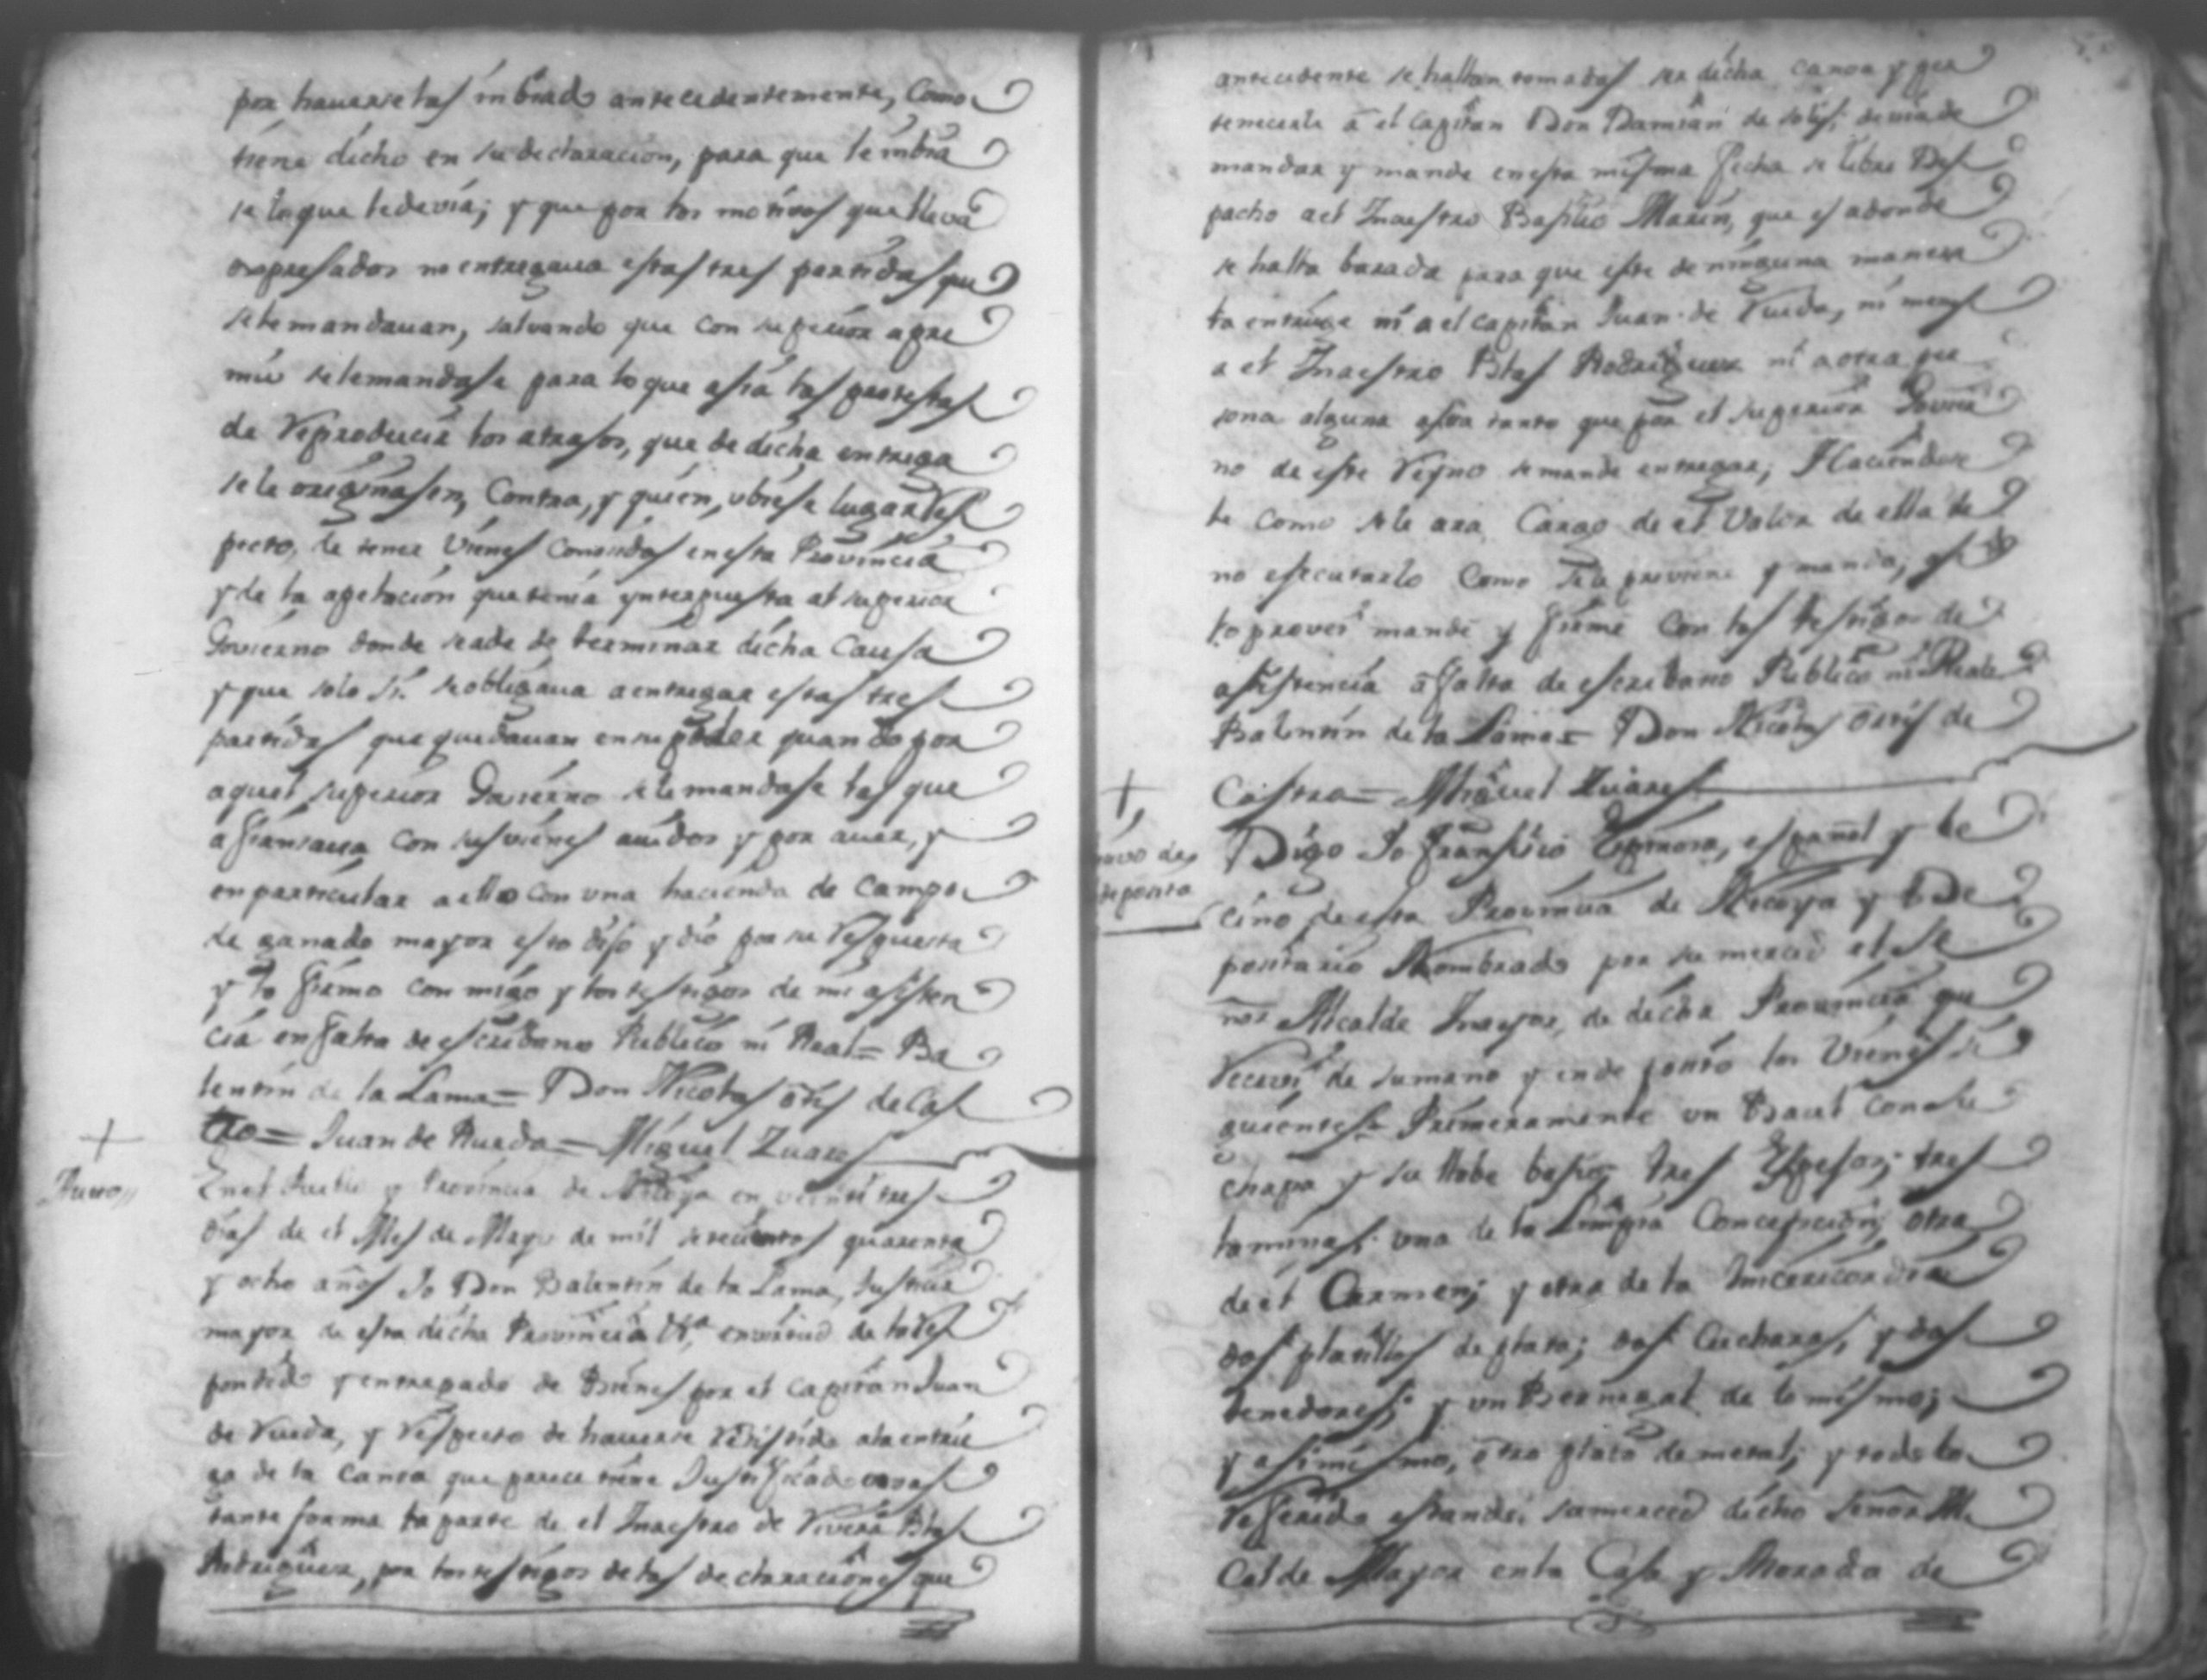 por hauerselas imbiado antecedentemente, Como
tiene dicho en su declaracion, para que le imbia
se lo que le devia; y que por los motivos que lleva
expresados no entregaua estas tres partidas que
se le mandauan, saluando que con superior apre
mio se le mandase para lo que asia las protestas
de Reproducir los atrasos, que de dicha entrega
se le originasen, Contra, y quien, ubiese lugar Res
pecto, de tener Vienes Conosidos en esta Provincia
y de la apelacion que tenia ynterpuesta al superior
Govierno donde se ade de terminar dicha Causa
y que solo si se obligaua a entregar estas tres
partidas que quedauan en su poder quando por
aquel superior Govierno se le mandase las que
afiansaua con sus vienes auidos y por auer, y
en particular a ello con una hacienda de Campo
de ganado mayor esto dijo y dio por su Respuesta
y lo firmo con migo y los testigos de mi asisten
cia en falta de escribano Publico ni Real = Ba
lentin de la Lama = Don Nicolas Ortis de Cas
tro = Juan de Rueda = Miguel Zuares
+
Auto
En el Pueblo y Provincia de Nicoya en veinte y tres
dias de el Mes de Mayo de mil setecientos quarenta
y ocho años Yo Don Balentin de la Lama, Justicia
mayor de esta dicha Provincia Va. en virtud de lo Res
pondido y entregado de Bienes por el Capitan Juan
de Rueda, y Respecto de hauerse Resistido a la entrie
ga de la Canoa que parece tiene Justificado en bas
tante forma la parte de el Maestro de Rivera Blas
Rodriguez, por los testigos de las declaraciones que
antecedente se hallan tomadas ser dicha canoa y per
tenecerle a el Capitan Don Damian de Solis; devia de
mandar y mande en esta misma fecha se libre Des
pacho a el Maestro Basilio Marin, que es adonde
se halla barada para que este de ninguna manera
la entriege ni a el capitan Juan de Rueda, ni menos
a el Maestro Blas Rodriguez ni a otra per
sona alguna asta tanto que por el superior Govier
no de este Reyno se mande entregar; Haciendose
le como se le ara Cargo de el Valor de ella de
no esecutarlo Como se le previene y manda; asi
lo provei mande y firme Con los testigos de
asistencia a falta de escribano Publico ni Real
Balentin de la Lama = Don Nicolas Ortis de
Castro = Miguel Zuares
+
de
deposito
Digo Yo Francisco Espinosa, español y be
cino de esta Provincia de Nicoya y De
positario Nombrado por su merced el Se
ñor Alcalde Mayor, de dicha Provincia que
Receui de su mano y en de posito los Vienes si
guientes Primeramente un Baul con su
chapa y su llabe basio; tres Espejos; tres
laminas; una de la Limpia Concepcion; otra
de el Carmen; y otra de la Misericordia
dos platillos de plata; dos Cucharas, y dos
tenedores; y un Bernegal de lo mismo;
y asi mismo, otro plato de metal; y todo lo
Referido estando, su merced dicho Señor Al
calde Mayor en la Casa y Morada de